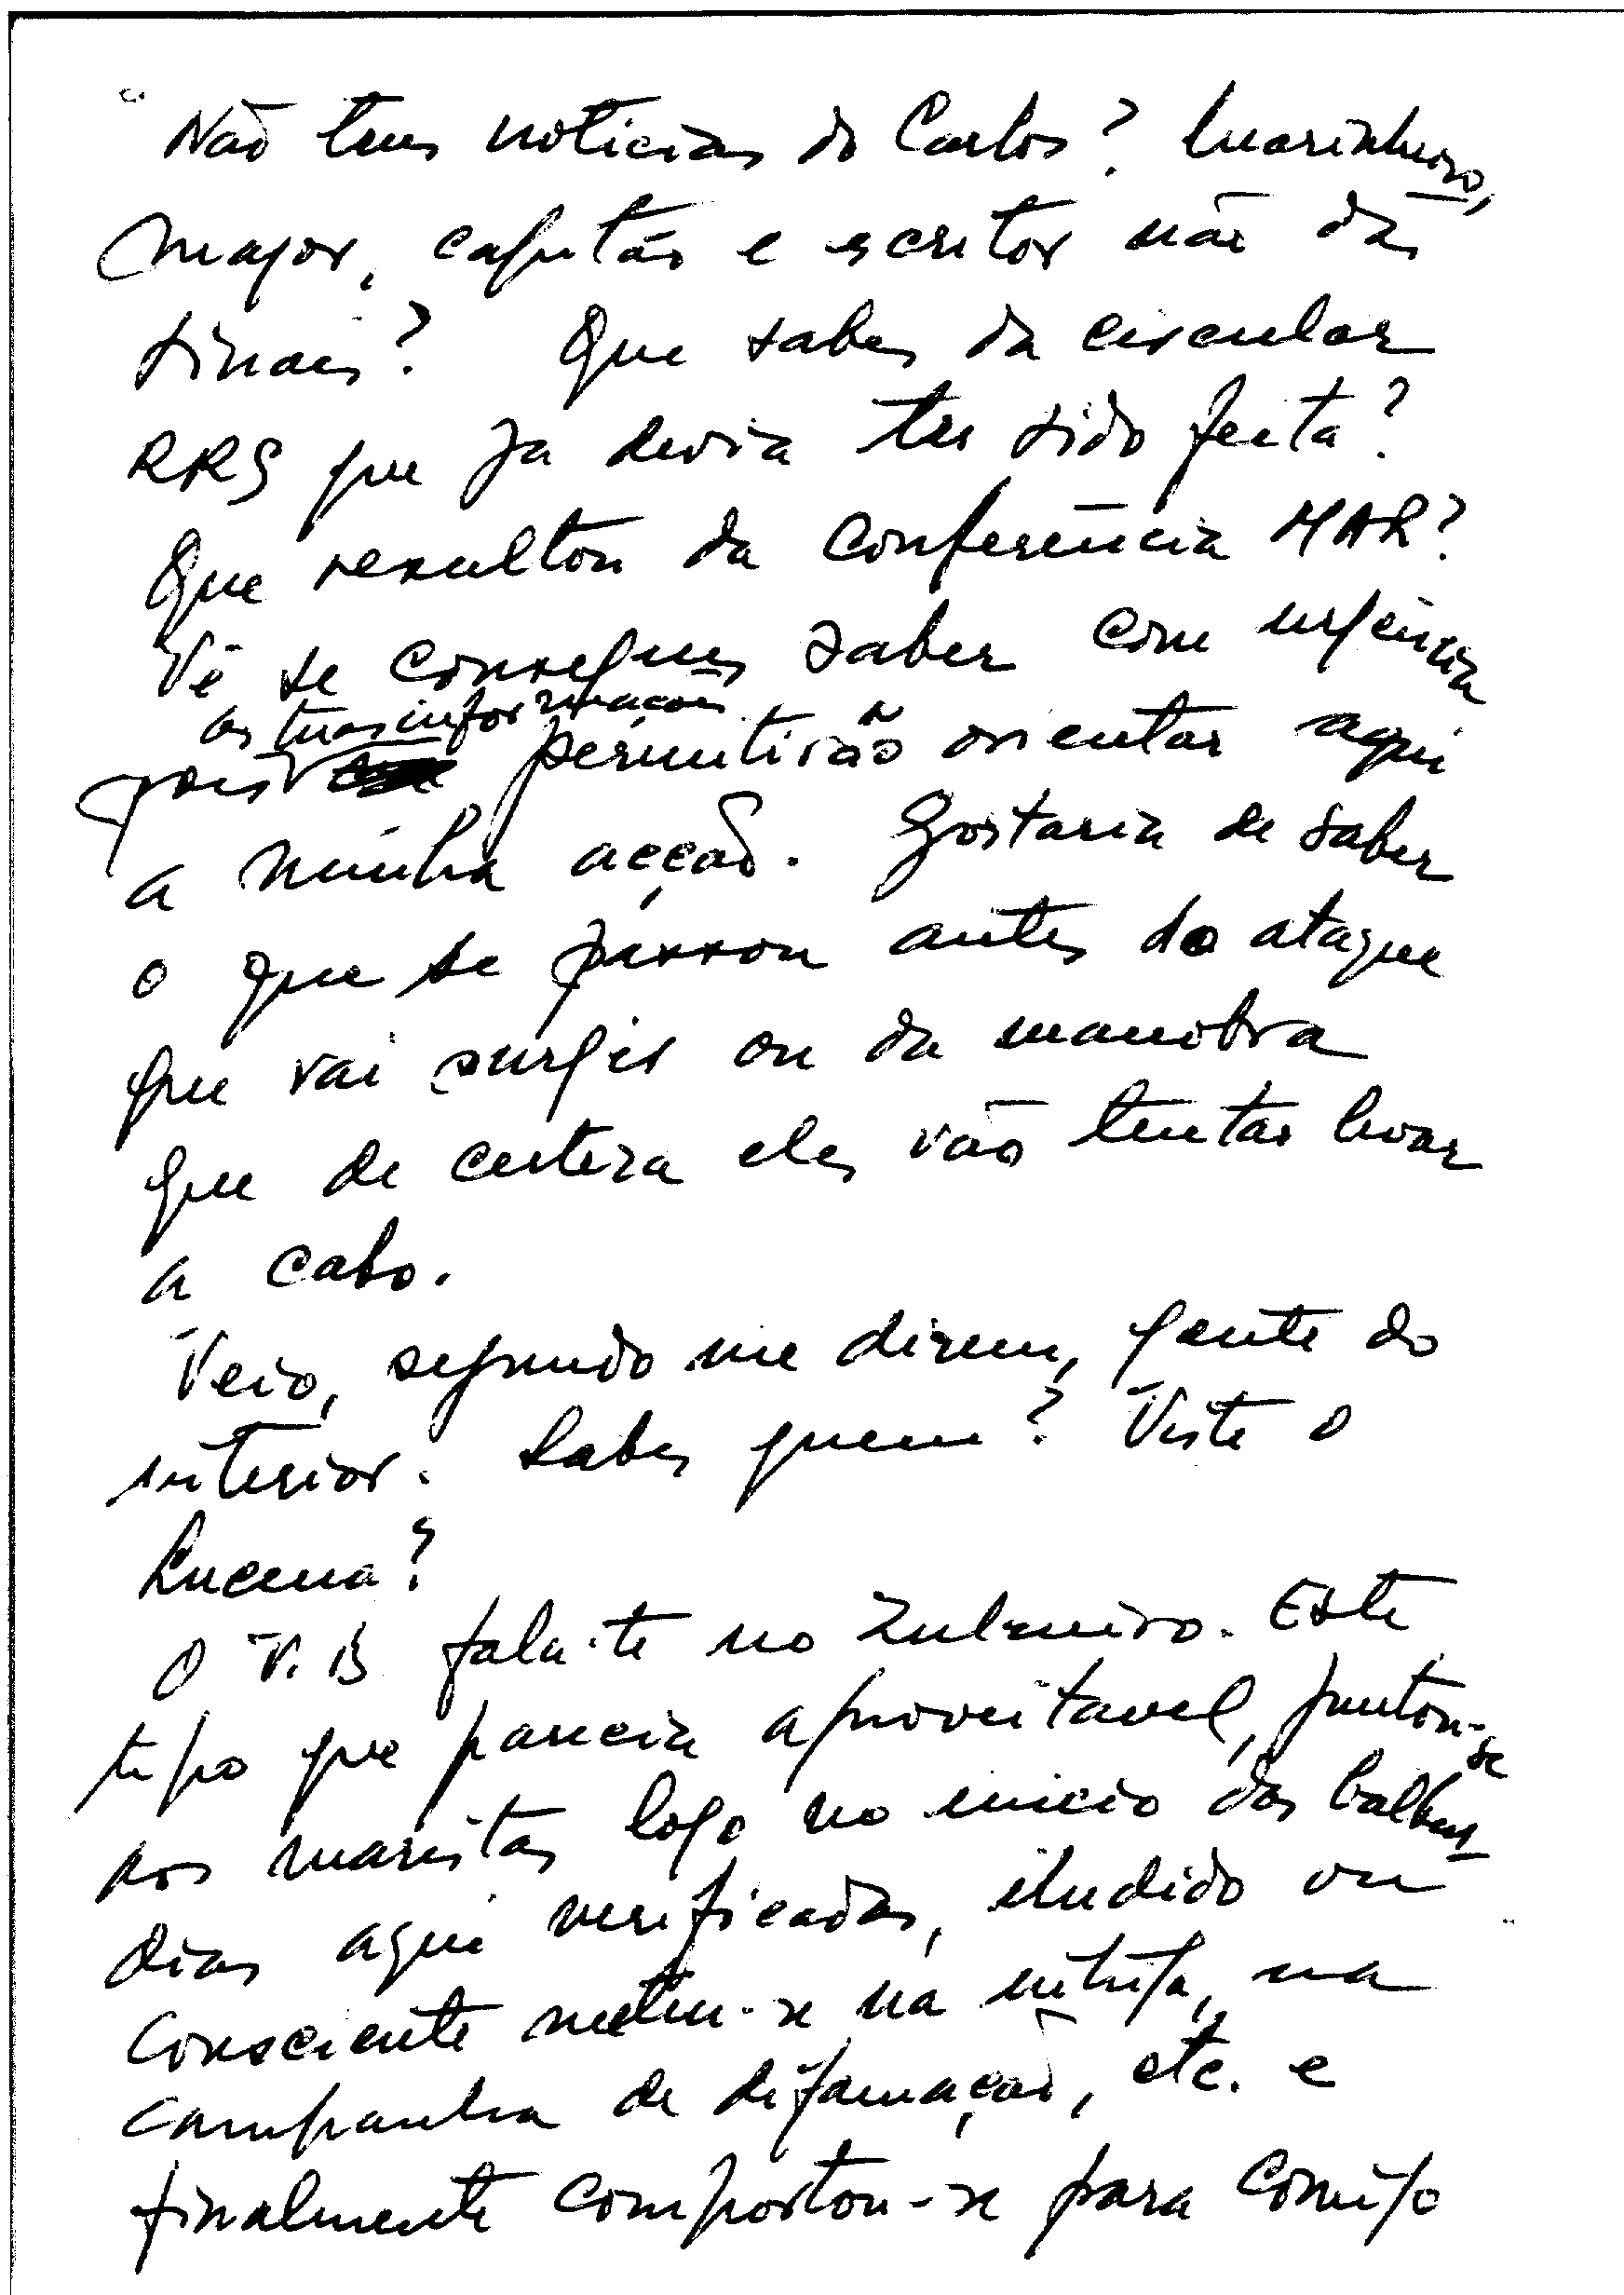 Não tens noticias do Carlos? Marinheiro,
major, capitão e escritor não dás
sinais? Que sabes da circular
RRS que ja devia ter sido feita?
Que resultou da conferência MAR?
Vê se consegues saber com urgência
as tuas informações
pois permitirão orientar aqui
a minha acção. Gostaria de saber
o que se passou antes do ataque
que vai surgir ou da manobra
que de certeza eles vão tentar levar
a cabo.
Veio, segundo me dizem, gente do
interior. Sabes quem? Viste o
Lucena?
O V.B fala-te no Zulmiro. Este
tipo que parecia aproveitavel, juntou-se
aos maristas logo no inicio das balbur-
dias aqui verificadas, iludido ou
consciente meteu-se na intriga, na
campanha de difamação, etc. e
finalmente comportou-se para comigo